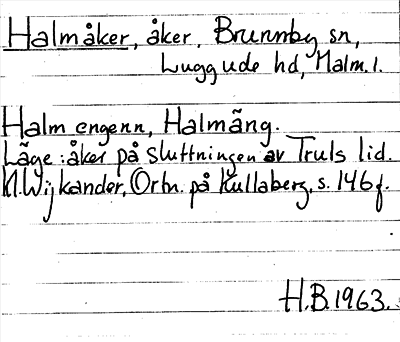 Halmåker, åker, Brunnby sn,
Luggude hd, Malm. l.
Halm engenn, Halmäng.
Läge: åker på sluttningen av Truls lid.
N. Wijkander, Ortn. på Kullaberg, s. 146 f.
H.B. 1963.